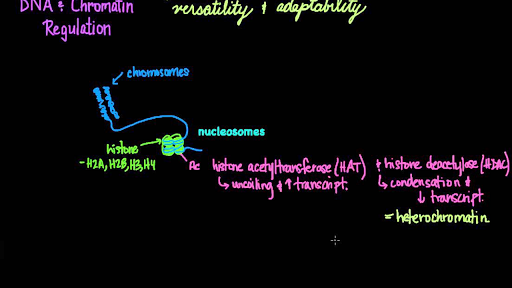 DNA & Chromatin
Regulation
versatility & adaptability
chromosomes
nucleosomes
histone
- H2A, H2B, H3, H4
Ac
histone acetyltransferase (HAT)
↳ uncoiling & ↑ transcript.
& histone deacetylase (HDAC)
↳ condensation &
↓ transcript.
= heterochromatin